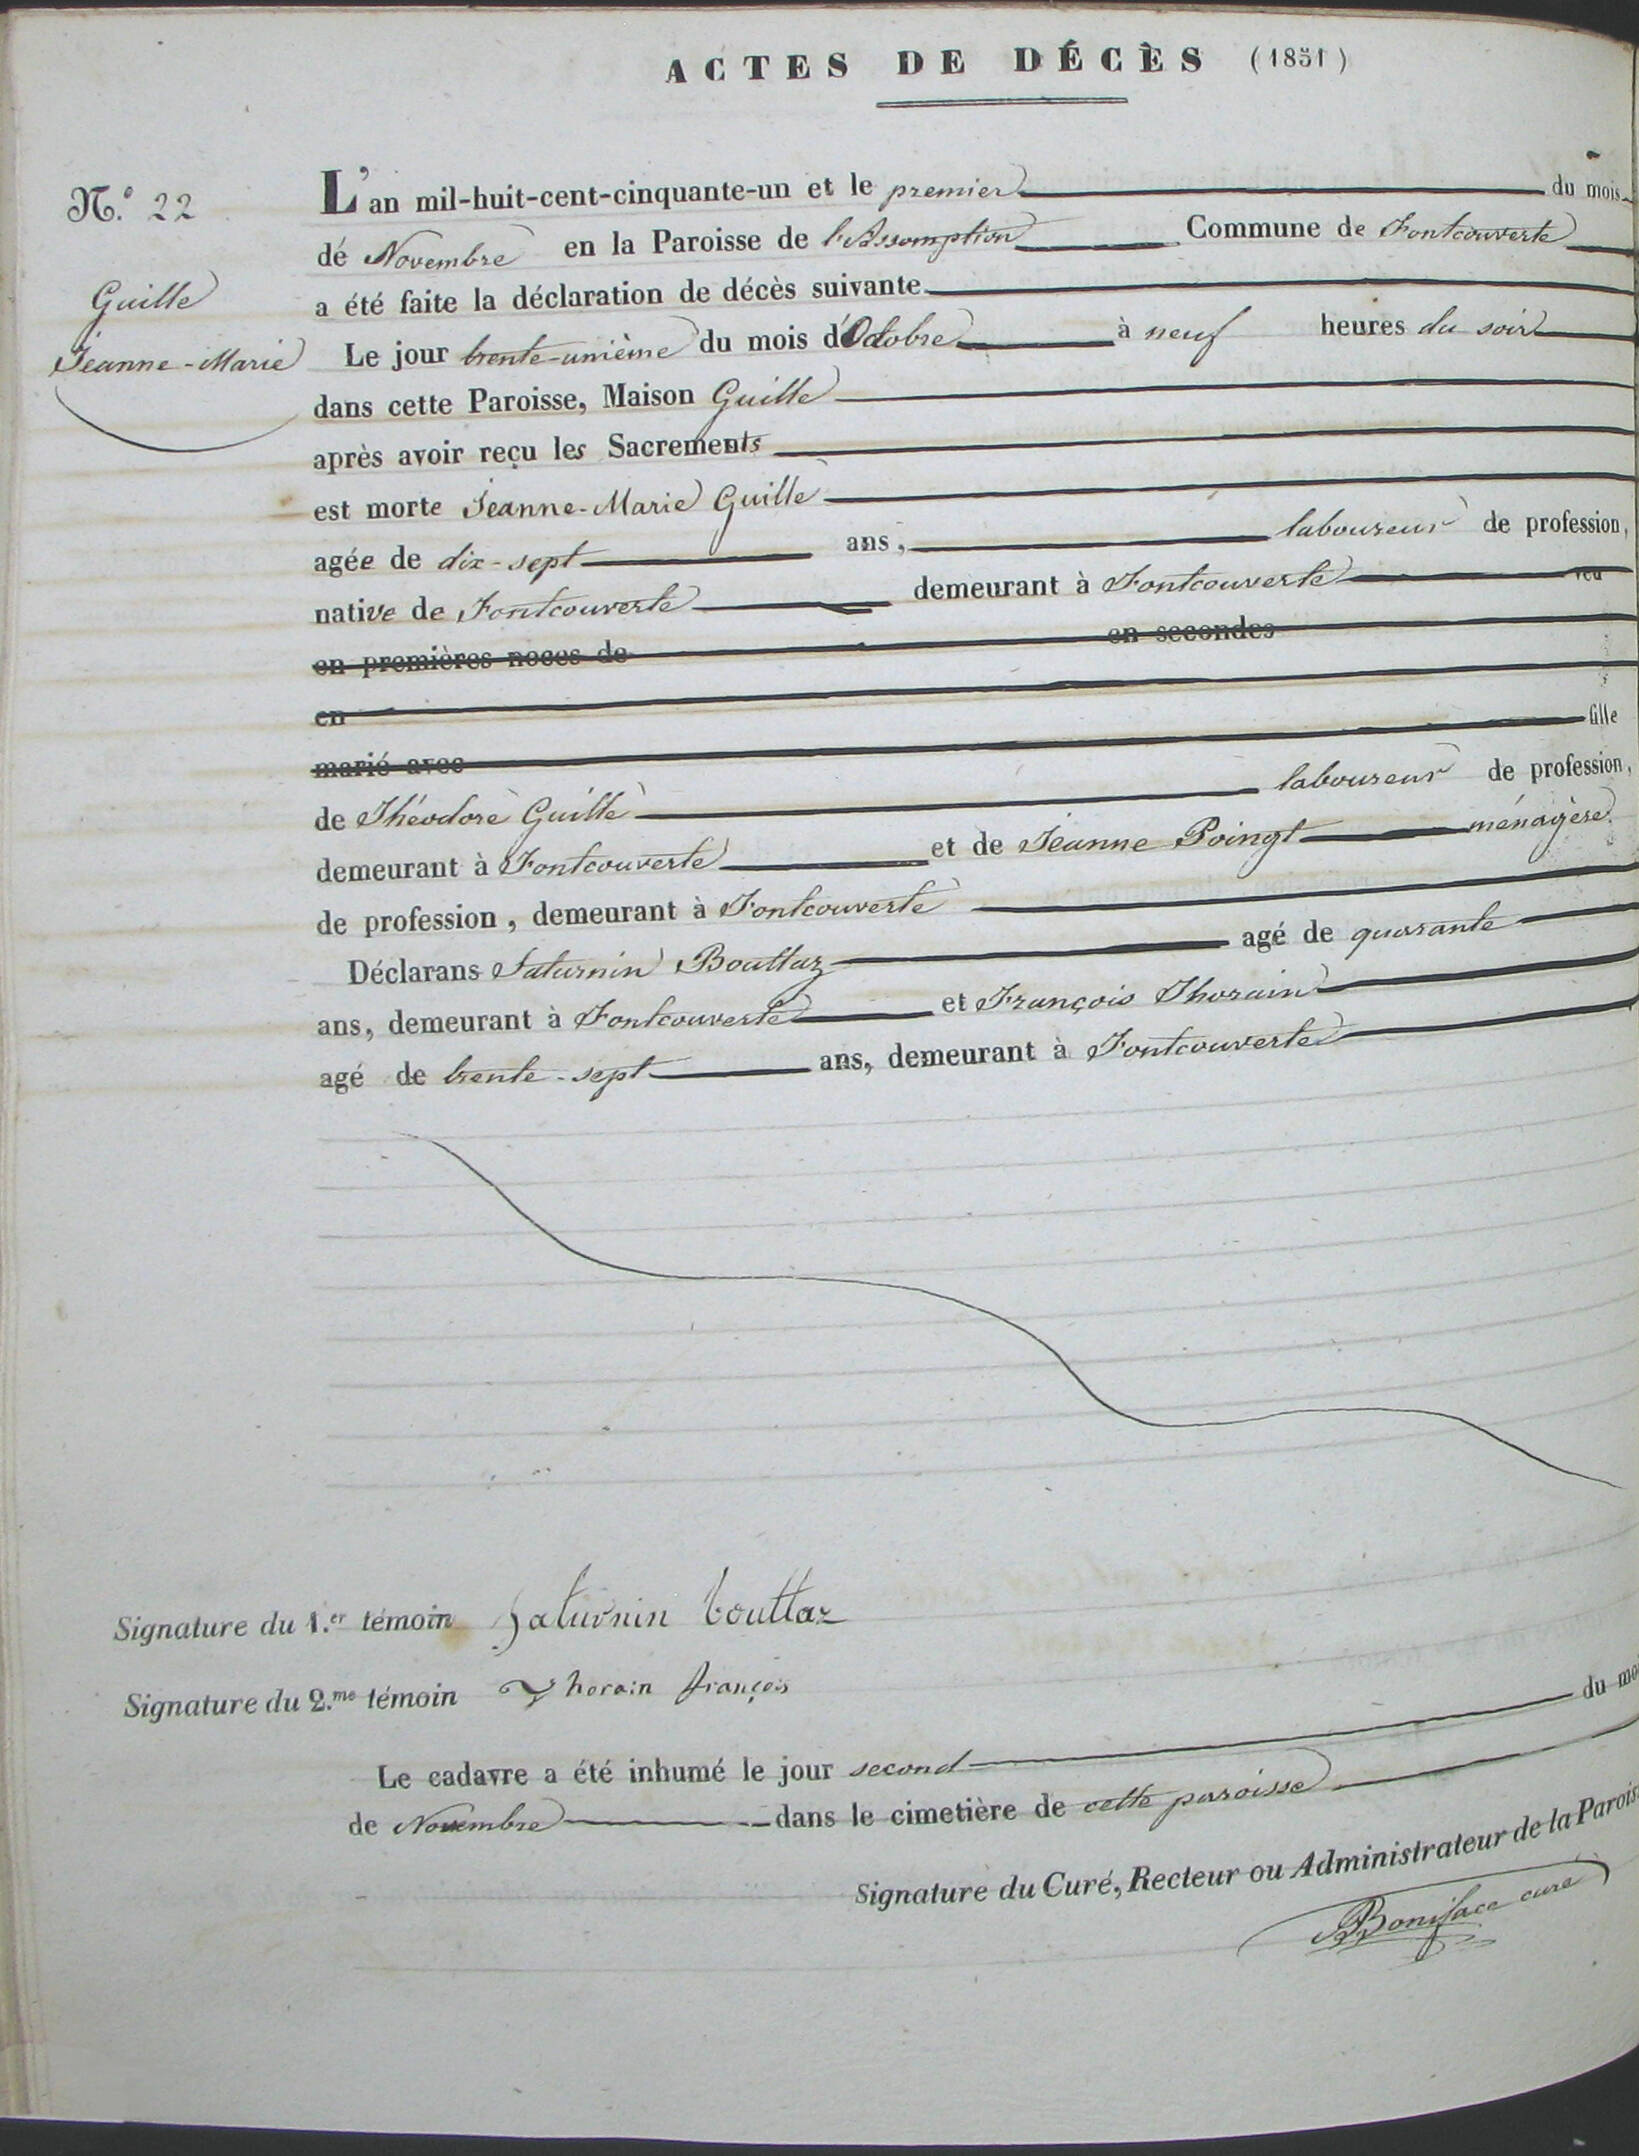 ACTES DE DÉCÈS (1851)
N.º 22
Guille
Jeanne-Marie
L'an mil-huit-cent-cinquante-un et le premier du mois
de Novembre en la Paroisse de l'Assomption Commune de Fontcouverte
a été faite la déclaration de décès suivante
Le jour trente-unième du mois d'Octobre à neuf heures du soir
dans cette Paroisse, Maison Guille
après avoir reçu les Sacrements
est morte Jeanne-Marie Guille
agée de dix-sept ans, laboureur de profession,
native de Fontcouverte demeurant à Fontcouverte veu
en premières noces de en secondes
en
marié avec fille
de Théodore Guille laboureur de profession,
demeurant à Fontcouverte et de Jeanne Poingt ménagère
de profession, demeurant à Fontcouverte
Déclarans Saturnin Bouttaz agé de quarante
ans, demeurant à Fontcouverte et François Thorain
agé de trente-sept ans, demeurant à Fontcouverte
Signature du 1.er témoin Saturnin bouttaz
Signature du 2.me témoin Thorain françois
Le cadavre a été inhumé le jour second du moi
de Novembre dans le cimetière de cette paroisse
Signature du Curé, Recteur ou Administrateur de la Parois
Boniface curé